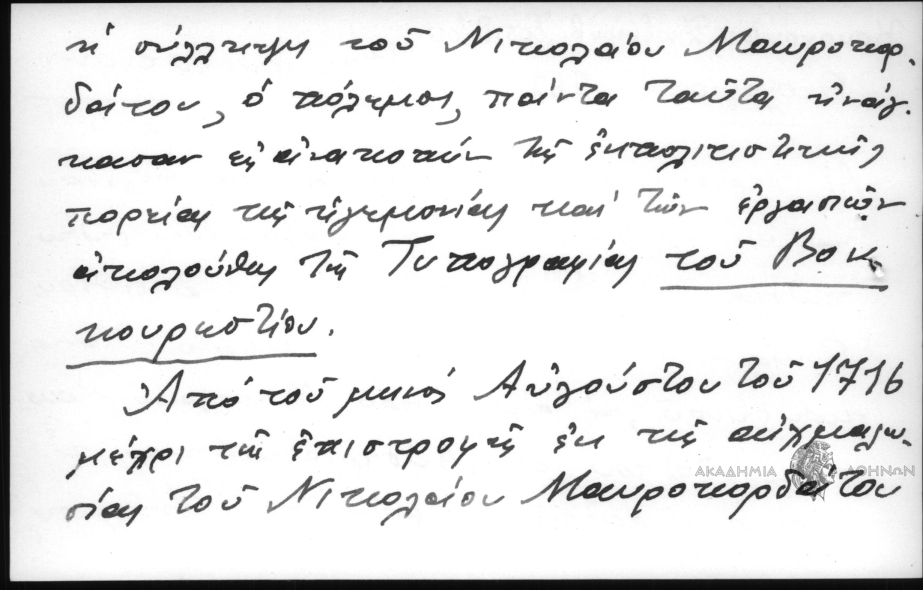 ἡ σύλληψη τοῦ Νικολαίου Μαυροκορ-
δάτου, ὁ πόλεμος, πάντα ταῦτα ἠνάγ-
κασαν εἰς ἀνακοπήν τῆς ἐκπολιτιστικῆς
πορείας τῆς ἡγεμονίας καί τῶν ἐργασιῶν
ἀκολούθως τῆς Τυπογραφίας τοῦ Βου-
κουρεστίου.
Ἀπό τοῦ μηνός Αὐγούστου τοῦ 1716
μέχρι τῆς ἐπιστροφῆς ἐκ τῆς αἰχμαλω-
ΑΚΑΔΗΜΙΑ ΑΘΗΝΩΝ
σίας τοῦ Νικολαίου Μαυροκορδάτου